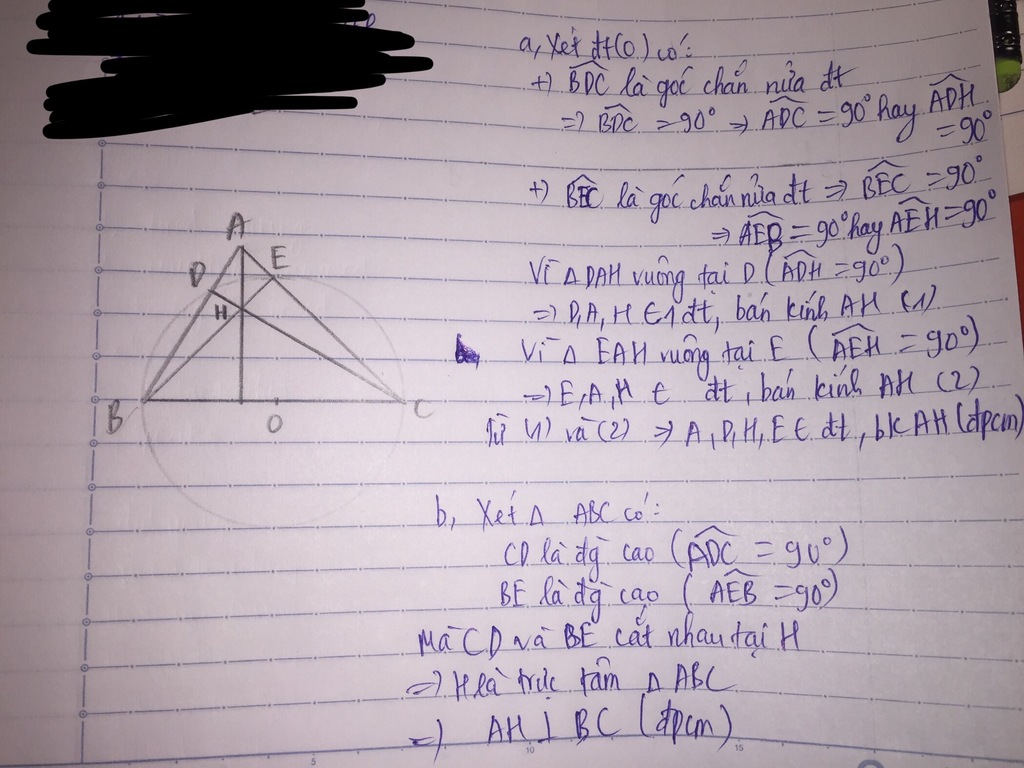 a, Xét đt(O) có:
+) BDC là góc chắn nửa đt
=> BDC = 90° => ADC = 90° hay ADH = 90°
+) BEC là góc chắn nửa đt => BEC = 90°
=> AEB = 90° hay AEH = 90°
Vì △ DAH vuông tại D (ADH = 90°)
=> D, A, H ∈ 1 đt, bán kính AH (1)
Vì △ EAH vuông tại E (AEH = 90°)
=> E, A, H ∈ đt, bán kính AH (2)
Từ (1) và (2) => A, D, H, E ∈ đt, bk AH (đpcm)
A
D
E
H
B
O
C
b, Xét △ ABC có:
CD là đg cao (ADC = 90°)
BE là đg cao (AEB = 90°)
Mà CD và BE cắt nhau tại H
=> H là trực tâm △ ABC
=> AH ⊥ BC (đpcm)
5
10
15